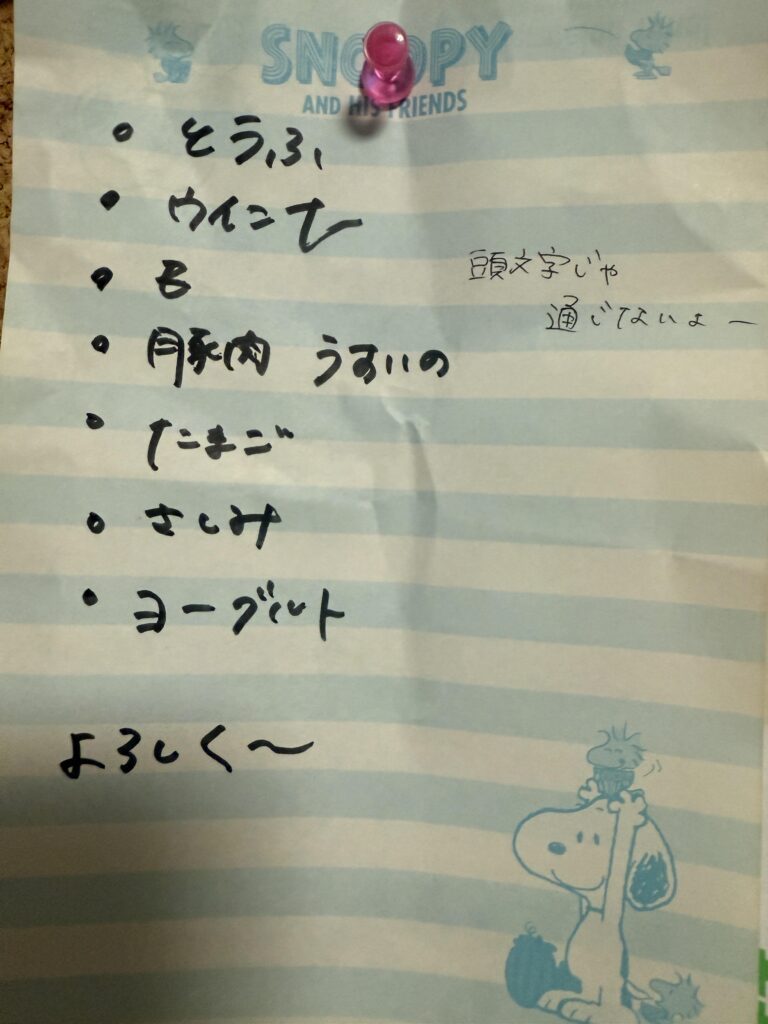 SNOOPY
AND HIS FRIENDS
• とうふ
• ウインナー
• B
頭文字じゃ
通じないよー
• 豚肉 うすいの
• たまご
• さしみ
• ヨーグルト
よろしく〜